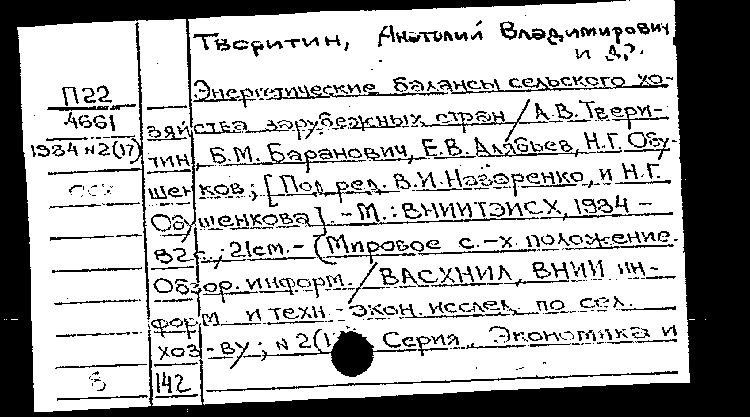 Тверитин, Анатолий Владимирович,
и др.
П22
4661
1984 №2(17)
Энергетические балансы сельского хо-
зяйства зарубежных стран / А.В. Твери-
тин, Б.М. Баранович, Е.В. Алябьев, Н.Г. Обу-
шенков; [Под ред. В.И. Назаренко, и Н.Г.
Обушенкова]. - М.: ВНИИТЭИСХ, 1984 -
82 с.; 21см. - (Мировое с.-х. положение.
Обзор. информ. / ВАСХНИЛ, ВНИИ ин-
форм и техн.-экон. исслед. по сел.
хоз-ву; №2(1 Серия. Экономика и
142